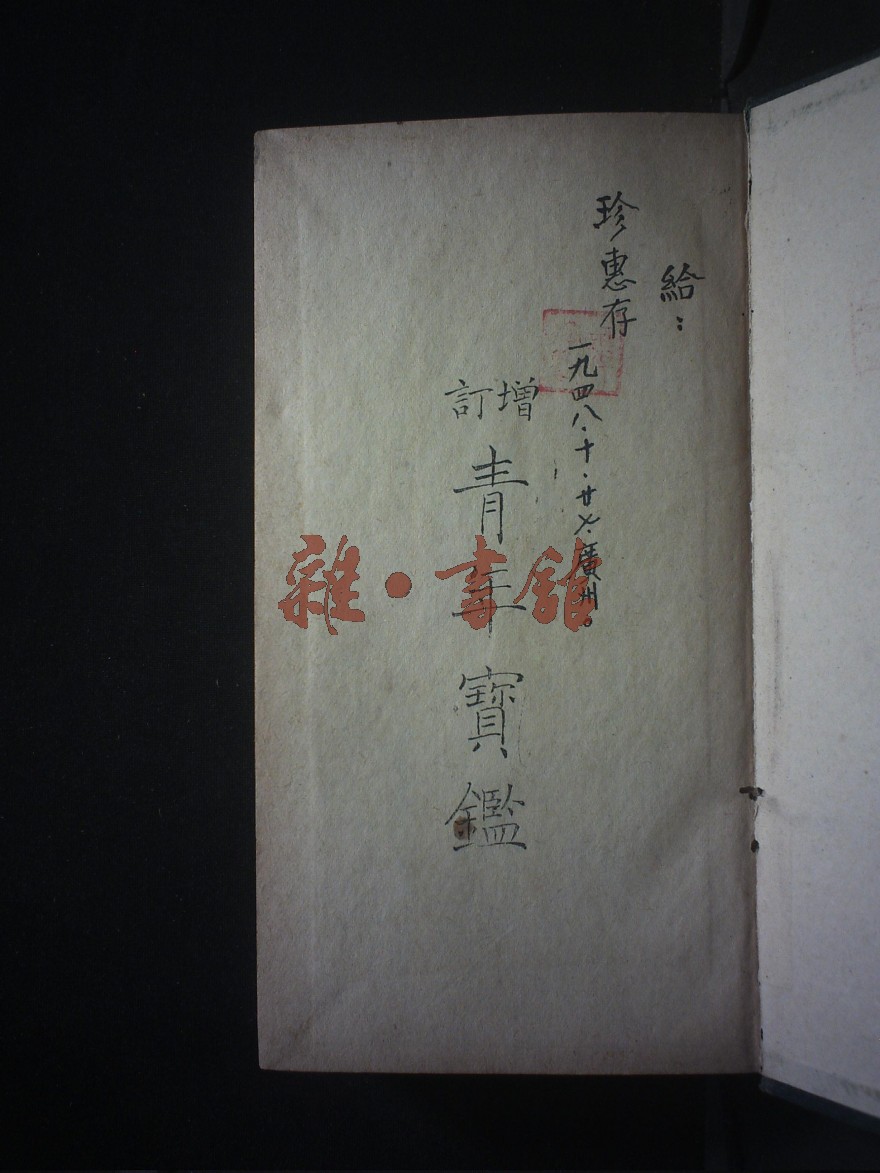 給：
珍惠存
一九四八·十·廿七·廣州。
增訂
青年寶鑑
雜·書館